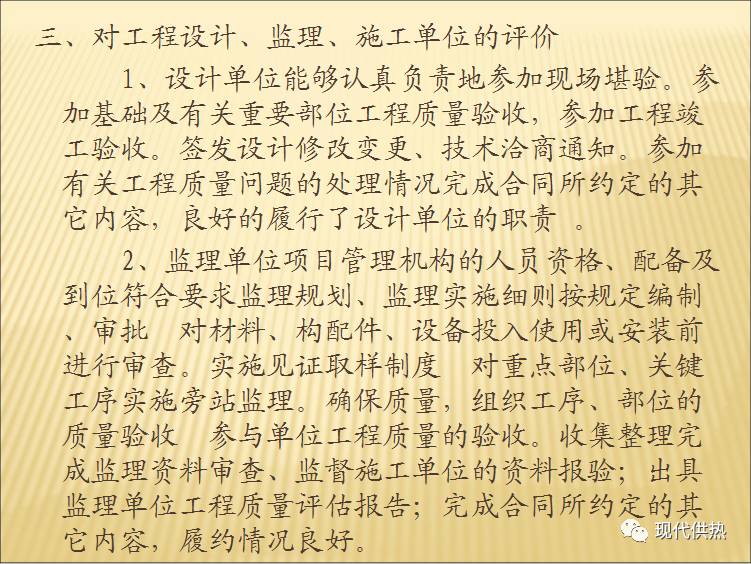 三、对工程设计、监理、施工单位的评价
1、设计单位能够认真负责地参加现场堪验。参
加基础及有关重要部位工程质量验收，参加工程竣
工验收。签发设计修改变更、技术洽商通知。参加
有关工程质量问题的处理情况完成合同所约定的其
它内容，良好的履行了设计单位的职责 。
2、监理单位项目管理机构的人员资格、配备及
到位符合要求监理规划、监理实施细则按规定编制
、审批 对材料、构配件、设备投入使用或安装前
进行审查。实施见证取样制度 对重点部位、关键
工序实施旁站监理。确保质量，组织工序、部位的
质量验收 参与单位工程质量的验收。收集整理完
成监理资料审查、监督施工单位的资料报验；出具
监理单位工程质量评估报告；完成合同所约定的其
它内容，履约情况良好。
现代供热